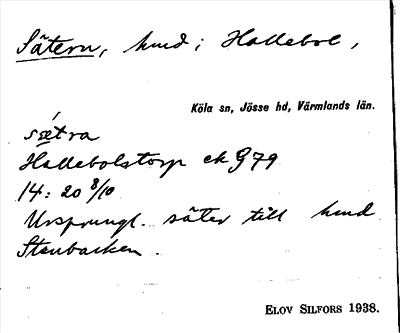 Sätern, hmd; i Hallebol,
Köla sn, Jösse hd, Värmlands län.
sætra
Hallebolstorp ek G 79
14: 20 8/10
Ursprungl. säter till hmd
Stenbacken.
ELOV SILFORS 1938.